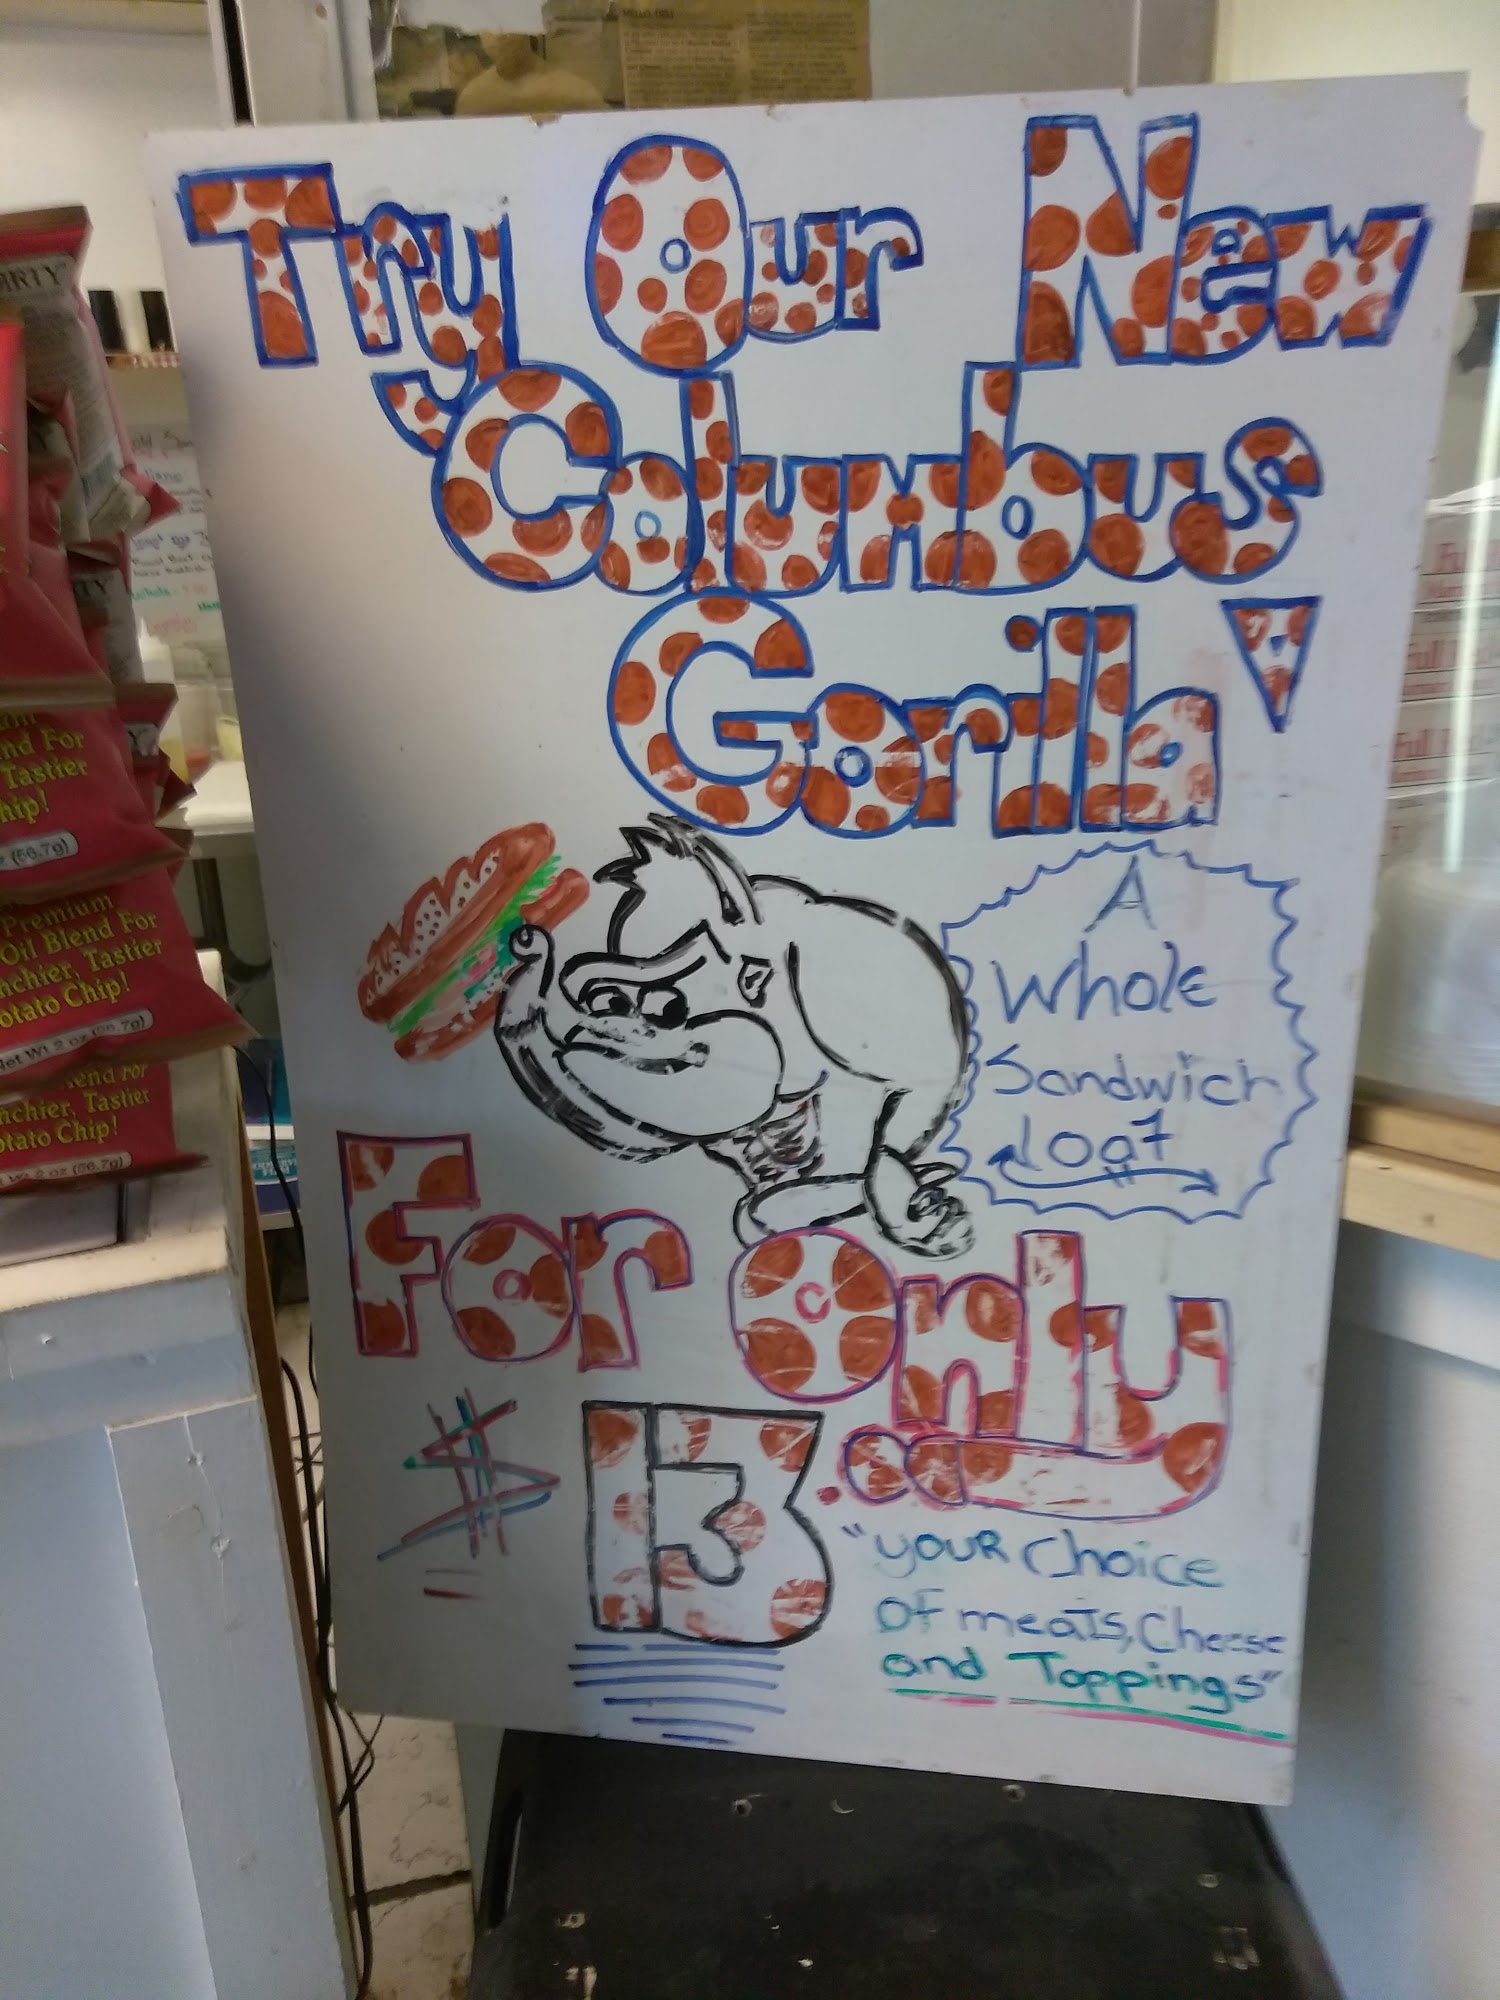 Try Our New
Columbus
Gorilla'
A
Whole
Sandwich
Loaf
For Only
$13
"YOUR Choice
OF meats, Cheese
and Toppings"
HELLO
DIRTY
Full
Full
Full
and For
Tastier
hip!
z (56.7g)
Premium
Oil Blend For
nchier, Tastier
otato Chip!
Net Wt 2 oz (56.7g)
lend For
nchier, Tastier
otato Chip!
Wt 2 oz (56.7g)